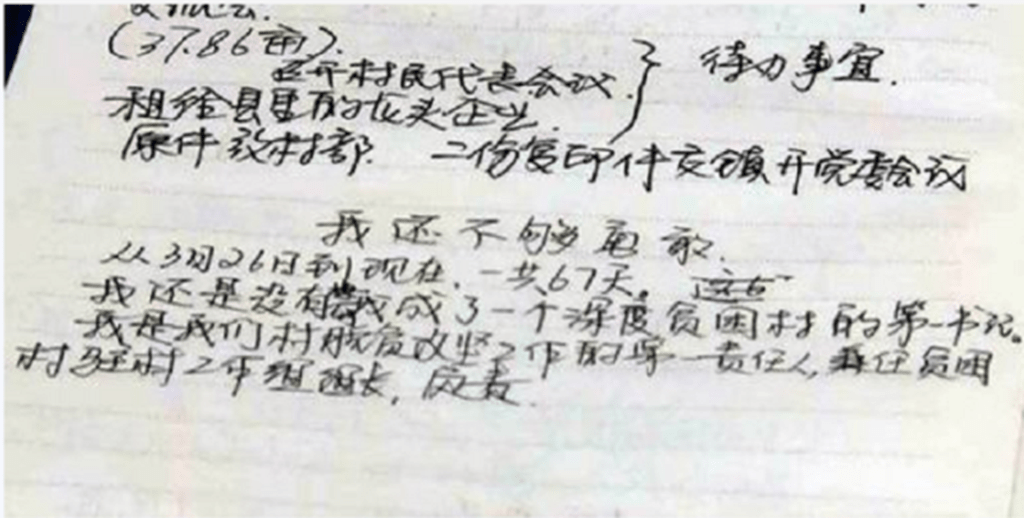 (37.86亩).
召开村民代表会议. } 待办事宜.
租给县里的龙头企业.
原件放村部. 二份复印件交镇开党委会议
我还不够勇敢.
从3月26日到现在,一共67天。这67
我还是没有当成了一个深度贫困村的第一书记。
我是我们村脱贫攻坚工作的第一责任人,兼任贫困
村驻村工作组组长,负责